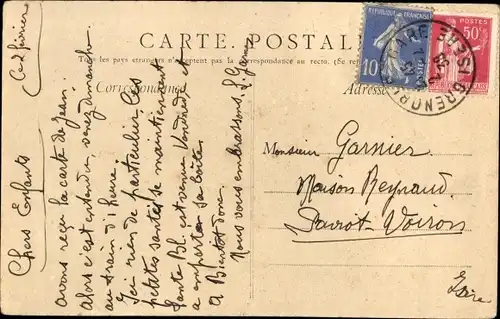 CARTE POSTALE
Tous les pays étrangers n'acceptent pas la correspondance au recto. (Se
Correspondance
Adresse
RÉPUBLIQUE FRANÇAISE
10
50c
POSTES
GARE
GRENOBLE
ISERE
Ce 2 février
Chers Enfants
avons reçu la carte de Jean.
Alors c'est entendu, venez dimanche
au train d'1 heure.
Ici rien de particulier les
petites santés se maintiennent
Tante Bl. est venue Vendredi et
a emporté sa boîte.
A Bientôt donc.
Nous vous embrassons, J. Garnier
Monsieur Garnier
Maison Reynaud
Voiron
Isère